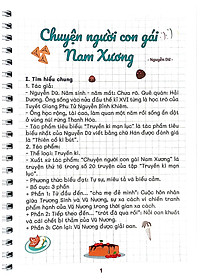 Chuyện người con gái
Nam Xương
- Nguyễn Dữ -
I. Tìm hiểu chung
1. Tác giả:
- Nguyễn Dữ. Năm sinh - năm mất: Chưa rõ. Quê quán: Hải
Dương. Ông sống vào nửa đầu thế kỉ XVI từng là học trò của
Tuyết Giang Phu Tử Nguyễn Bỉnh Khiêm.
- Ông học rộng, tài cao, làm quan một năm rồi sống ẩn dật
ở vùng núi rừng Thanh Hóa.
- Tác phẩm tiêu biểu: "Truyền kì mạn lục" là tác phẩm tiêu
biểu nhất của Nguyễn Dữ viết bằng chữ Hán được đánh giá
là "Thiên cổ kì bút".
2. Tác phẩm:
- Thể loại: Truyền kì.
- Xuất xứ tác phẩm: "Chuyện người con gái Nam Xương" là
truyện thứ 16 trong số 20 truyện của tập "Truyền kì mạn
lục".
- Phương thức biểu đạt: Tự sự, miêu tả và biểu cảm.
- Bố cục: 3 phần
+ Phần 1: Từ đầu đến... "cha mẹ đẻ mình": Cuộc hôn nhân
giữa Trương Sinh và Vũ Nương, sự xa cách vì chiến tranh
phẩm hạnh của Vũ Nương trong thời gian xa cách.
+ Phần 2: Tiếp theo đến... "trót đã qua rồi": Nỗi oan khuất
và cái chết bi thảm của Vũ Nương.
+ Phần 3: Còn lại: Vũ Nương được giải oan.
1